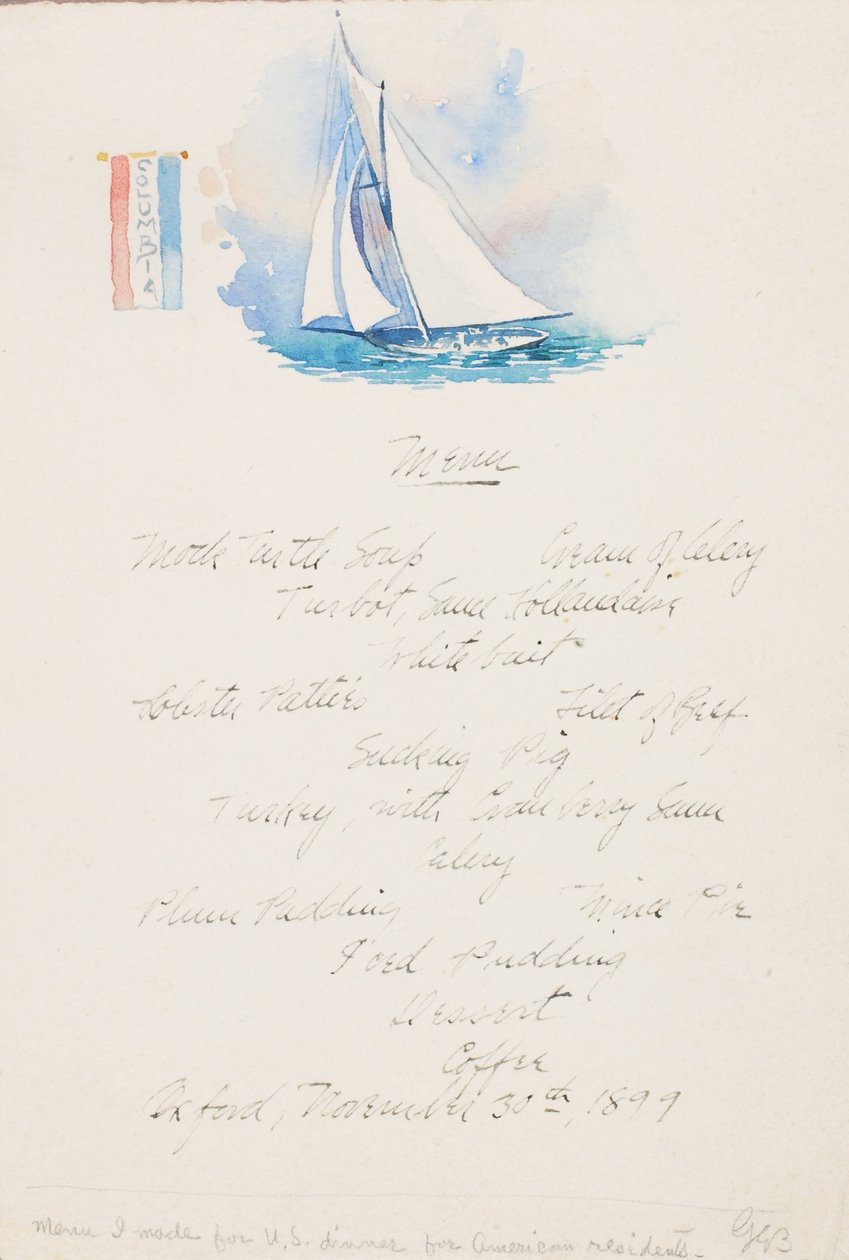 COLUMBIA
Menu
Mock Turtle Soup Cream of Celery
Turbot, Sauce Hollandaise
Whitebait
Lobster Patties Filet of Beef
Sucking Pig
Turkey, with Cranberry Sauce
Celery
Plum Pudding Mince Pie
Iced Pudding
Dessert
Coffee
Oxford, November 30th, 1899
menu I made for U.S. dinner for American residents-